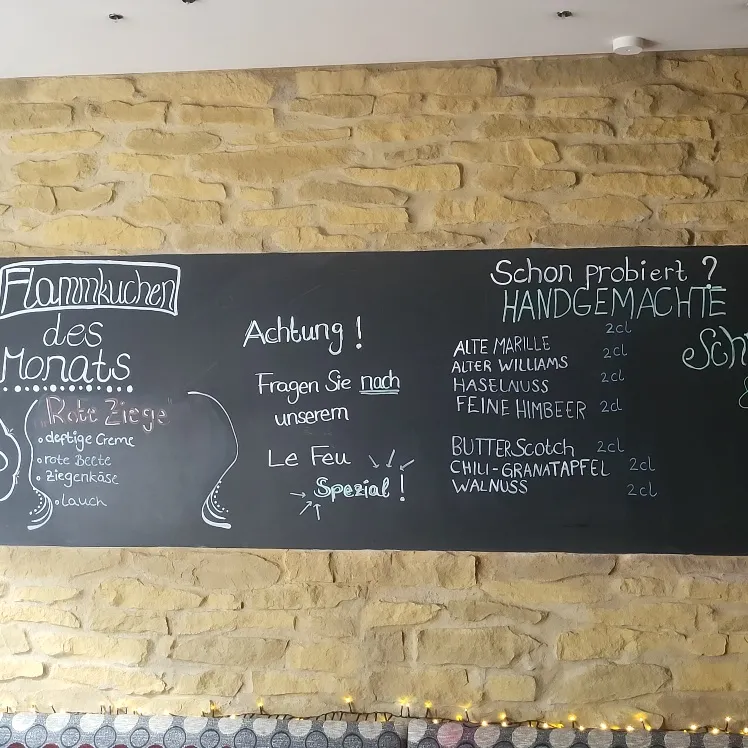 Flammkuchen
des
Monats
"Rote Ziege"
• deftige Creme
• rote Beete
• Ziegenkäse
• Lauch
Achtung!
Fragen Sie nach
unserem
Le Feu
Spezial!
Schon probiert?
HANDGEMACHTE
Sch
ALTE MARILLE 2cl
ALTER WILLIAMS 2cl
HASELNUSS 2cl
FEINE HIMBEER 2cl
BUTTERScotch 2cl
CHILI-GRANATAPFEL 2cl
WALNUSS 2cl